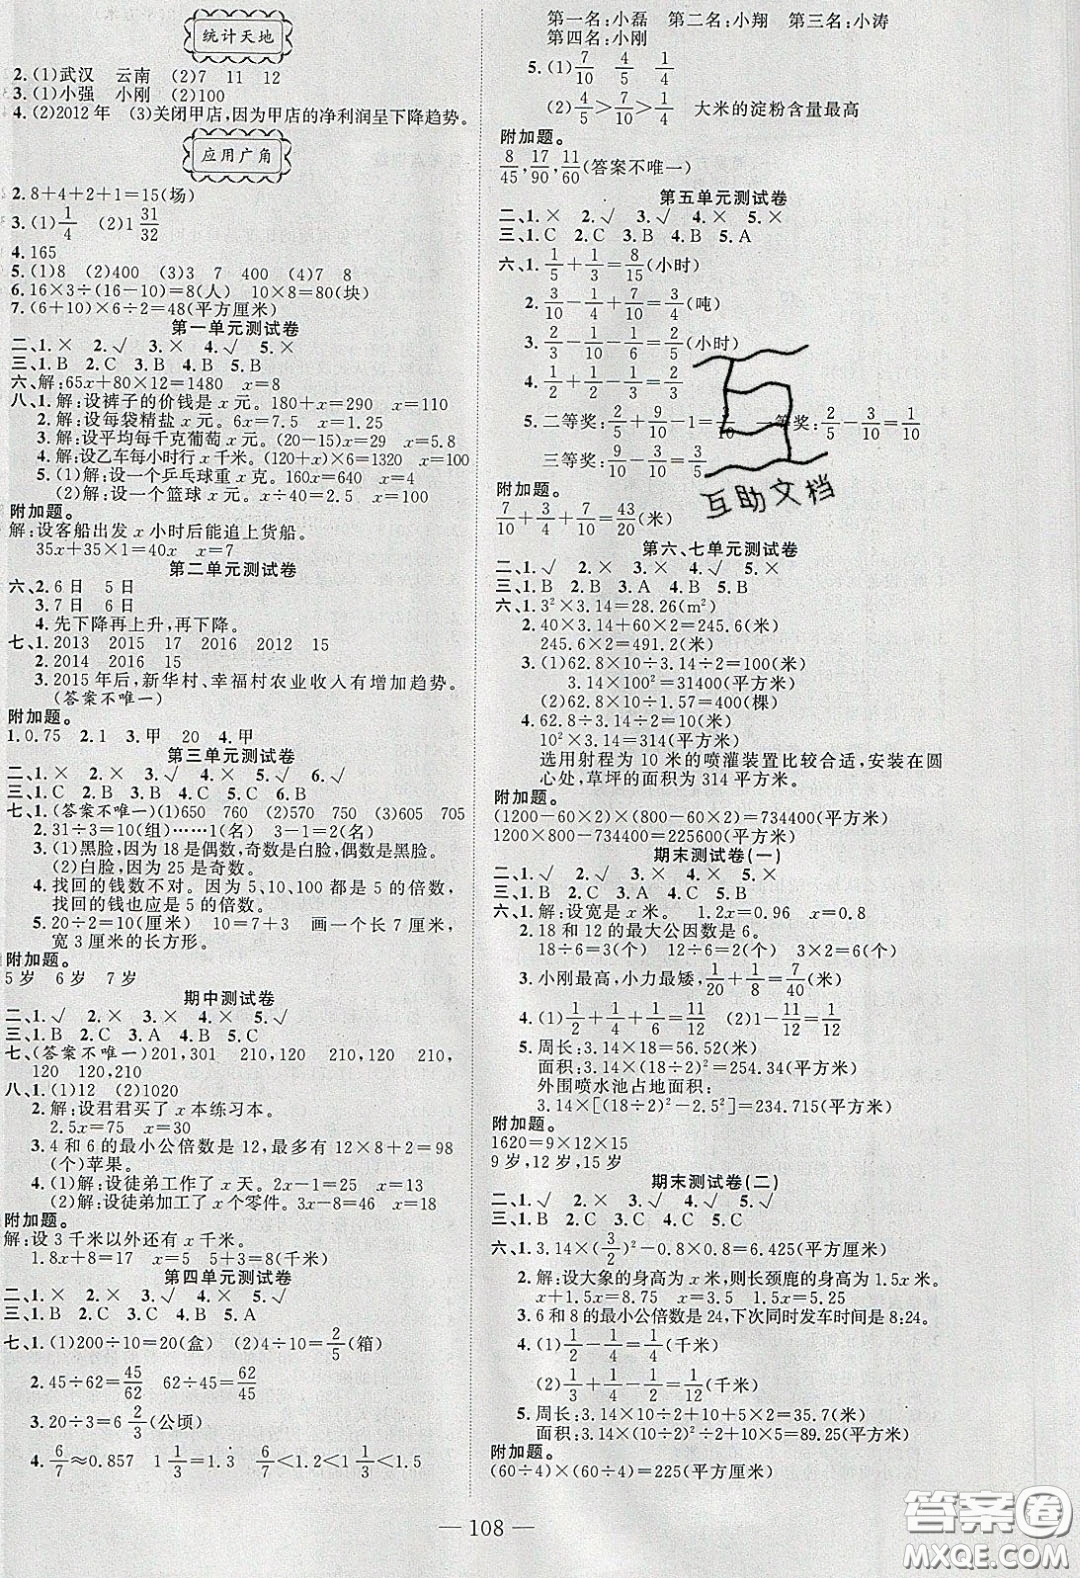 统计天地
2.(1)武汉 云南 (2)7 11 12
3.(1)小强 小刚 (2)100
4.(2)2012年 (3)关闭甲店,因为甲店的净利润呈下降趋势。
应用广角
2.8+4+2+1=15(场)
3.(1)1/4 (2)1 31/32
4.165
5.(1)8 (2)400 (3)3 7 400 (4)7 8
6.16×3÷(16-10)=8(人) 10×8=80(块)
7.(6+10)×6÷2=48(平方厘米)
第一单元测试卷
二、1.× 2.√ 3.× 4.√ 5.×
三、1.B 2.C 3.B 4.B 5.B
六、解:65x+80×12=1480 x=8
八、1.解:设裤子的价钱是x元。180+x=290 x=110
2.解:设每袋精盐x元。6x=7.5 x=1.25
3.解:设平均每千克葡萄x元。(20-15)x=29 x=5.8
4.解:设乙车每小时行x千米。(120+x)×6=1320 x=100
5.(1)解:设一个乒乓球重x克。160x=640 x=4
(2)解:设一个篮球x元。x÷40=2.5 x=100
附加题。
解:设客船出发x小时后能追上货船。
35x+35×1=40x x=7
第二单元测试卷
六、2.6日 5日
3.7日 6日
4.先下降再上升,再下降。
七、1.2013 2015 17 2016 2012 15
2.2014 2016 15
3.2015年后,新华村、幸福村农业收入有增加趋势。
(答案不唯一)
附加题。
1.0.75 2.1 3.甲 20 4.甲
第三单元测试卷
二、1.× 2.× 3.√ 4.× 5.× 6.√
三、1.B 2.B 3.C 4.A 5.C 6.B
七、1.(答案不唯一)(1)650 760 (2)570 750 (3)605 705
2.31÷3=10(组)……1(名) 3-1=2(名)
3.(1)黑脸,因为18是偶数,奇数是白脸,偶数是黑脸。
(2)白脸,因为25是奇数。
4.找回的钱数不对。因为5、10、100都是5的倍数,
找回的钱也应是5的倍数。
5.20÷2=10(厘米) 10=7+3 画一个长7厘米,
宽3厘米的长方形。
附加题。
5岁 6岁 7岁
期中测试卷
二、1.√ 2.× 3.× 4.× 5.√
三、1.B 2.C 3.A 4.B 5.C
七、(答案不唯一)201,301 210,120 210,120 210,
120 120,210
八、1.(1)12 (2)1020
2.解:设君君买了x本练习本。
2.5x=75 x=30
3.4和6的最小公倍数是12,最多有12×8+2=98
(个)苹果。
4.(1)解:设徒弟工作了x天。2x-1=25 x=13
(2)解:设徒弟加工了x个零件。3x-8=46 x=18
附加题。
解:设3千米以外还有x千米。
1.8x+8=17 x=5 3+5=8(千米)
第四单元测试卷
二、1.× 2.√ 3.× 4.√ 5.√
三、1.C 2.B 3.A 4.B 5.C
七、1.(1)200÷10=20(盒) (2)4÷10=2/5(箱)
2.45÷62=45/62 62÷45=62/45
3.20÷3=6 2/3(公顷)
4.6/7≈0.857 1 1/3=1.3 6/7<1.2<1 1/3<1.5
第一名:小磊 第二名:小翔 第三名:小涛
第四名:小刚
5.(1)7/10 4/5 1/4
(2)4/5>7/10>1/4 大米的淀粉含量最高
附加题。
8/45,17/90,11/60(答案不唯一)
第五单元测试卷
二、1.× 2.√ 3.√ 4.× 5.×
三、1.C 2.C 3.B 4.B 5.A
六、1.1/5+1/3=8/15(小时)
2.3/10-1/4+7/10=3/4(吨)
3.2/3-1/10-1/6=2/5(小时)
4.1/2+1/2-1/3=2/3
5.二等奖:2/5+9/10-1= 等奖:2/5-3/10=1/10
三等奖:9/10-3/10=3/5
附加题。
7/10+3/4+7/10=43/20(米)
第六、七单元测试卷
二、1.√ 2.× 3.× 4.√ 5.×
三、1.B 2.C 3.A 4.B 5.C
六、1.3²×3.14=28.26(m²)
2.40×3.14+60×2=245.6(米)
245.6×2=491.2(米)
3.(1)62.8×10÷3.14÷2=100(米)
3.14×100²=31400(平方米)
(2)62.8×10÷1.57=400(棵)
4.62.8÷3.14÷2=10(米)
10²×3.14=314(平方米)
选用射程为10米的喷灌装置比较合适,安装在圆
心处,草坪的面积为314平方米。
附加题。
(1200-60×2)×(800-60×2)=734400(平方米)
1200×800-734400=225600(平方米)
期末测试卷(一)
二、1.× 2.√ 3.√ 4.× 5.×
三、1.B 2.C 3.A 4.B 5.C
六、1.解:设宽是x米。 1.2x=0.96 x=0.8
2.18和12的最大公因数是6。
18÷6=3(个) 12÷6=2(个) 3×2=6(个)
3.小刚最高,小力最矮,1/20+1/8=7/40(米)
4.(1)1/2+1/4+1/6=11/12 (2)1-11/12=1/12
5.周长:3.14×18=56.52(米)
面积:3.14×(18÷2)²=254.34(平方米)
外围喷水池占地面积:
3.14×[(18÷2)²-2.5²]=234.715(平方米)
附加题。
1620=9×12×15
9岁,12岁,15岁
期末测试卷(二)
二、1.√ 2.× 3.× 4.√ 5.√
三、1.B 2.C 3.C 4.A 5.C
六、1.3.14×(3/2)²-0.8×0.8=6.425(平方厘米)
2.解:设大象的身高为x米,则长颈鹿的身高为1.5x米。
x+1.5x=8.75 x=3.5 1.5x=5.25
3.6和8的最小公倍数是24,下次同时发车时间是8:24。
4.(1)1/2-1/3+1/4=5/12(千米)
(2)1/3+1/4-1/2=1/12(千米)
5.周长:3.14×10÷2+10+5×2=35.7(米)
面积:3.14×(10÷2)²÷2+10×5=89.25(平方米)
附加题。
(60÷4)×(60÷4)=225(平方厘米)
互助文档
— 108 —
答案圈
MXQE.COM